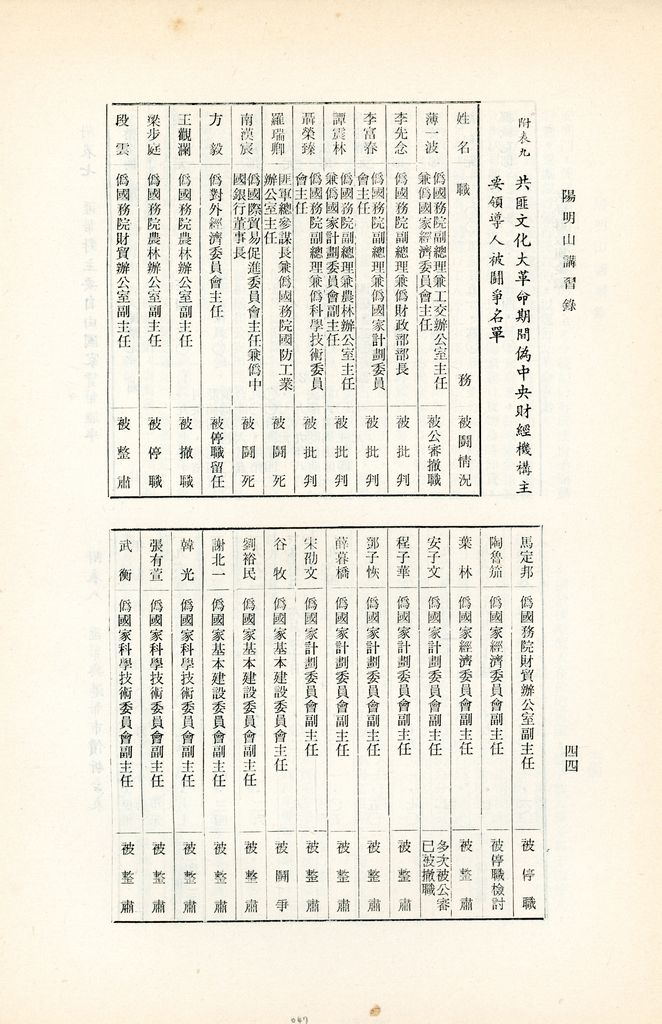 陽明山講習錄
四四
附表九
共匪文化大革命期間偽中央財經機構主
要領導人被鬪爭名單
姓名 職務 被鬪情況
薄一波 偽國務院副總理兼工交辦公室主任
兼偽國家經濟委員會主任 被公審撤職
李先念 偽國務院副總理兼偽財政部部長 被批判
李富春 偽國務院副總理兼偽國家計劃委員
會主任 被批判
譚震林 偽國務院副總理兼農林辦公室主任
兼偽國家計劃委員會副主任 被批判
聶榮臻 偽國務院副總理兼偽科學技術委員
會主任 被批判
羅瑞卿 匪軍總參謀長兼偽國務院國防工業
辦公室主任 被鬪死
南漢宸 偽國際貿易促進委員會主任兼偽中
國銀行董事長 被鬪死
方毅 偽對外經濟委員會主任 被停職留任
王觀瀾 偽國務院農林辦公室副主任 被撤職
梁步庭 偽國務院農林辦公室副主任 被停職
段雲 偽國務院財貿辦公室副主任 被整肅
馬定邦 偽國務院財貿辦公室副主任 被停職
陶魯笳 偽國家經濟委員會副主任 被停職檢討
葉林 偽國家經濟委員會副主任 被整肅
安子文 偽國家計劃委員會副主任 多次被公審
已被撤職
程子華 偽國家計劃委員會副主任 被整肅
鄧子恢 偽國家計劃委員會副主任 被整肅
薛暮橋 偽國家計劃委員會副主任 被整肅
宋劭文 偽國家計劃委員會副主任 被整肅
谷牧 偽國家基本建設委員會主任 被鬪爭
劉裕民 偽國家基本建設委員會副主任 被整肅
謝北一 偽國家基本建設委員會副主任 被整肅
韓光 偽國家科學技術委員會副主任 被整肅
張有萱 偽國家科學技術委員會副主任 被整肅
武衡 偽國家科學技術委員會副主任 被整肅
067